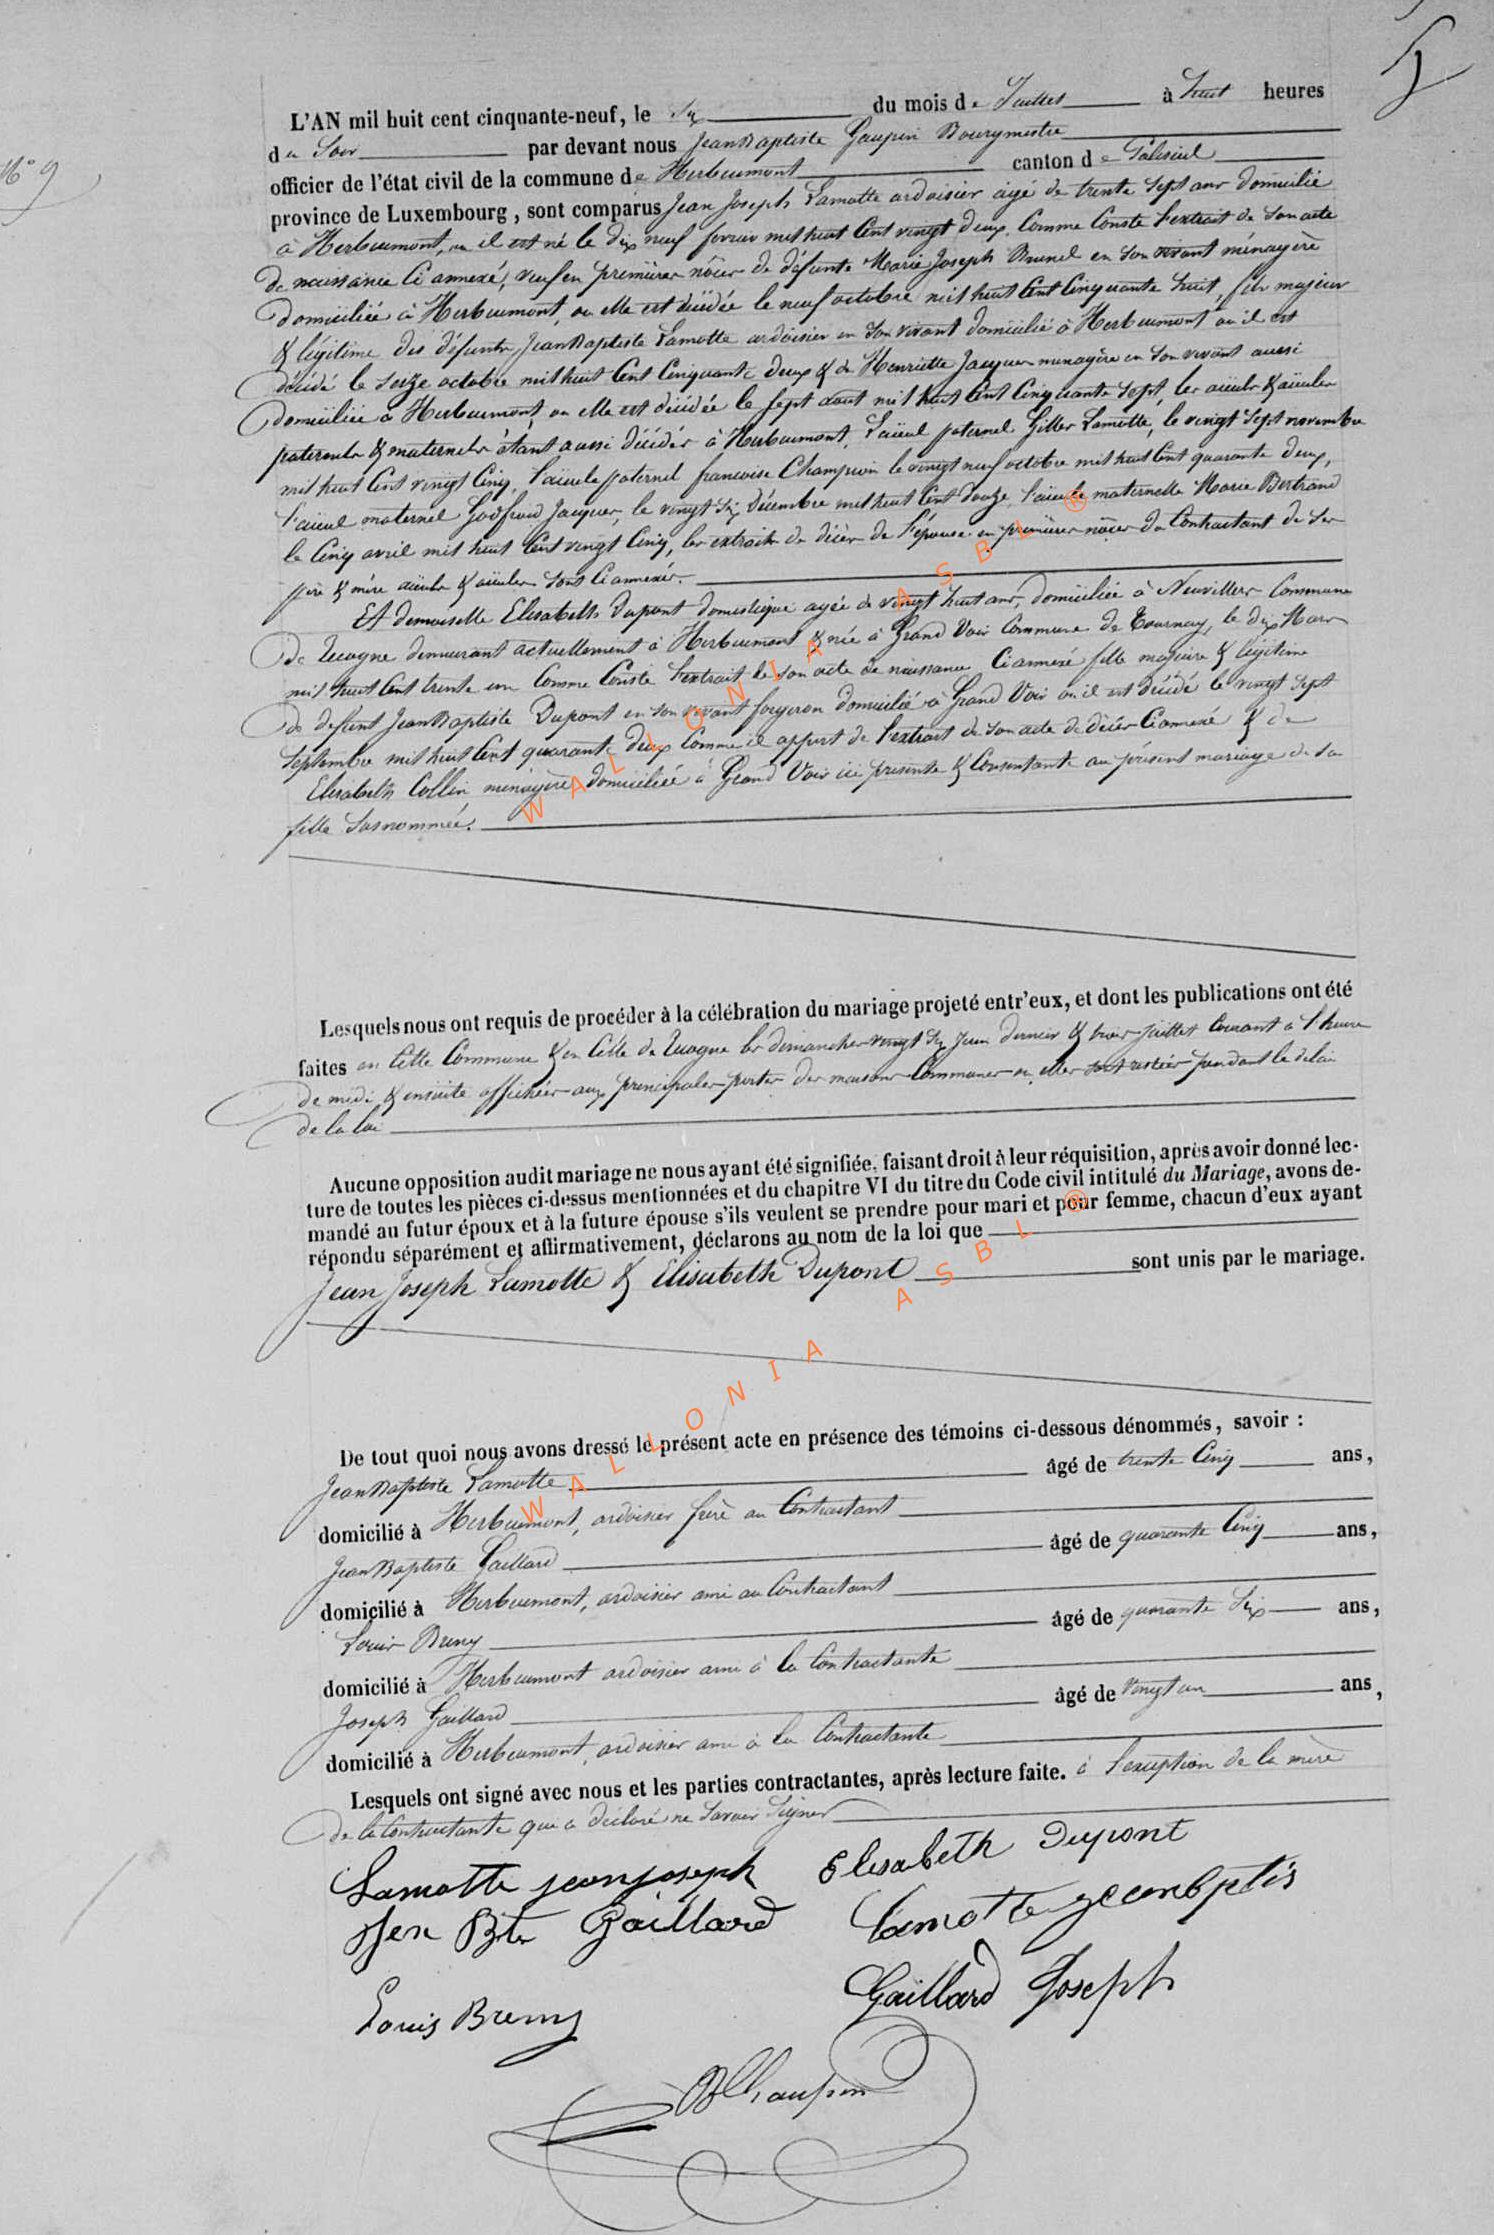 5
N° 9
L'AN mil huit cent cinquante-neuf, le six du mois de Juillet à huit heures
du Soir par devant nous Jean Baptiste Gaupin Bourgmestre
officier de l'état civil de la commune de Herbeumont canton de Paliseul
province de Luxembourg, sont comparus Jean Joseph Lamotte ardoisier agé de trente Sept ans domicilié
à Herbeumont, ou il est né le dix neuf fevrier mil huit Cent vingt deux, Comme Conste l'extrait de Son acte
de naissance Ci annexé, veuf en premières nôces de défunte Marie Joseph Brunel en Son vivant ménagère
domiciliée à Herbeumont, ou elle est décédée le neuf octobre mil huit Cent Cinquante huit, fils majeur
& légitime des défunts, Jean Baptiste Lamotte ardoisier en Son vivant domicilié à Herbeumont ou il est
décédé le Seize octobre mil huit Cent Cinquante deux & de Henriette Jacques menagère en Son vivant aussi
domiciliée à Herbeumont, ou elle est décédée le Sept aout mil huit Cent Cinquante Sept, les aïeuls & aïeules
paternels & maternels étant aussi décédés à Herbeumont, l'aïeul paternel Gilles Lamotte, le vingt Sept novembre
mil huit Cent vingt Cinq, l'aïeule paternel francoise Champion le vingt neuf octobre mil huit Cent quarante deux,
l'aïeul maternel Godfroid Jacques, le vingt Six Décembre mil huit Cent douze, l'aïeule maternelle Marie Bertrand
le Cinq avril mil huit Cent vingt Cinq, les extraits de décès de l'épouse en premières nôces du Contractant de Ses
père & mère aïeuls & aïeules Sont Ci annexés.
Et demoiselle Elisabeth Dupont domestique agée de vingt huit ans, domiciliée à Neuvillers Commune
de Recogne demeurant actuellement à Herbeumont & née à Grand Voir Commune de Tournay, le dix Mars
mil huit Cent trente un Comme Conste l'extrait de Son acte de naissance Ci annexé fille majeure & légitime
de defunt Jean Baptiste Dupont en Son vivant forgeron domicilié à Grand Voir ou il est décédé le vingt Sept
Septembre mil huit Cent quarante deux Comme il appert de l'extrait de Son acte de décès Ci annexé & de
Elisabeth Collin ménagère domiciliée à Grand Voir ici présente & Consentante au présent mariage de Sa
fille Susnommée.
Lesquels nous ont requis de procéder à la célébration du mariage projeté entr'eux, et dont les publications ont été
faites en Cette Commune & en Celle de Recogne les dimanches vingt Six Juin dernier & trois juillet Courant à l'heure
de midi & ensuite affichées aux principales portes des maisons Communes ou elles sont restées pendant le délai
de la loi
Aucune opposition audit mariage ne nous ayant été signifiée, faisant droit à leur réquisition, après avoir donné lec-
ture de toutes les pièces ci-dessus mentionnées et du chapitre VI du titre du Code civil intitulé du Mariage, avons de-
mandé au futur époux et à la future épouse s'ils veulent se prendre pour mari et pour femme, chacun d'eux ayant
répondu séparément et affirmativement, déclarons au nom de la loi que
Jean Joseph Lamotte & Elisabeth Dupont sont unis par le mariage.
De tout quoi nous avons dressé le présent acte en présence des témoins ci-dessous dénommés, savoir :
Jean Baptiste Lamotte âgé de trente Cinq ans,
domicilié à Herbeumont, ardoisier frère au Contractant
Jean Baptiste Gaillard âgé de quarante Cinq ans,
domicilié à Herbeumont, ardoisier ami au Contractant
Louis Bremy âgé de quarante Six ans,
domicilié à Herbeumont ardoisier ami à la Contractante
Joseph Gaillard âgé de vingt un ans,
domicilié à Herbeumont, ardoisier ami à la Contractante
Lesquels ont signé avec nous et les parties contractantes, après lecture faite. à l'exception de la mère
de la Contractante qui a déclaré ne Savoir Signer
Lamotte jean joseph Elesabeth Dupont
Jen Bte Gaillard Lamotte
Louis Bremy Gaillard Joseph
WALLONIA ASBL ®
WALLONIA ASBL ®